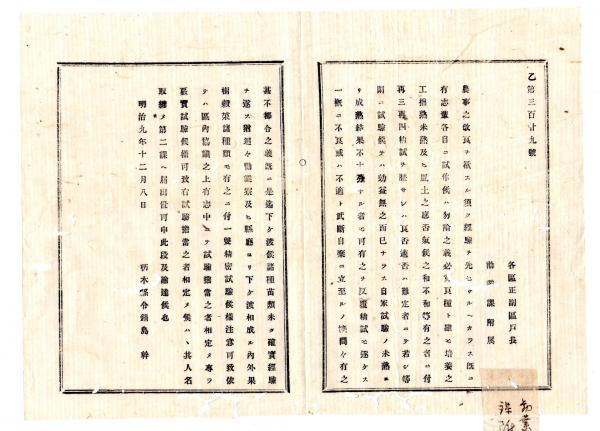 乙第三百廿九號
各區正副區戶長
勸業課附属
農事之敬良ヲ祇スル須ク經驗ヲ先ニセサルヘカラス既ニ
有志輩各自ニ試作候ハ勿論之義必ス良種ト雖モ培養之
工拙熟未熟及ヒ風土之應否氣候之和不和等有之者ニ付
再三再四精試ヲ歴サレハ良否適否ハ難定者ニテ若シ等
閑ニ試驗候テハ効益無之而已ナラス自家試驗ノ未熟ニ
リ成熟結果不十分ナル者モ可有之ヲ反覆精試モ遂ケス
一概ニ不良或ハ不適ト武斷自棄ニ立至ルノ弊間々有之
甚不都合之義ニ是迄下ケ渡候諸種苗類未タ確實經驗
ヲ遂ス猶追々勸業寮及ヒ縣廳ヨリ下ケ渡相成ル內外果
樹穀菜諸種類モ有之ニ付一層精密試驗候樣注意可致依
テハ區內協議之上有志中ニテ試驗擔當之者相定メ專ラ
着實試驗候樣可致右試驗擔當之者相定メ候ハヽ其人名
取纏メ第二課ヘ屆出置可申此段及諭達候也
明治九年十二月八日
栃木縣令鍋島幹
勸業
課